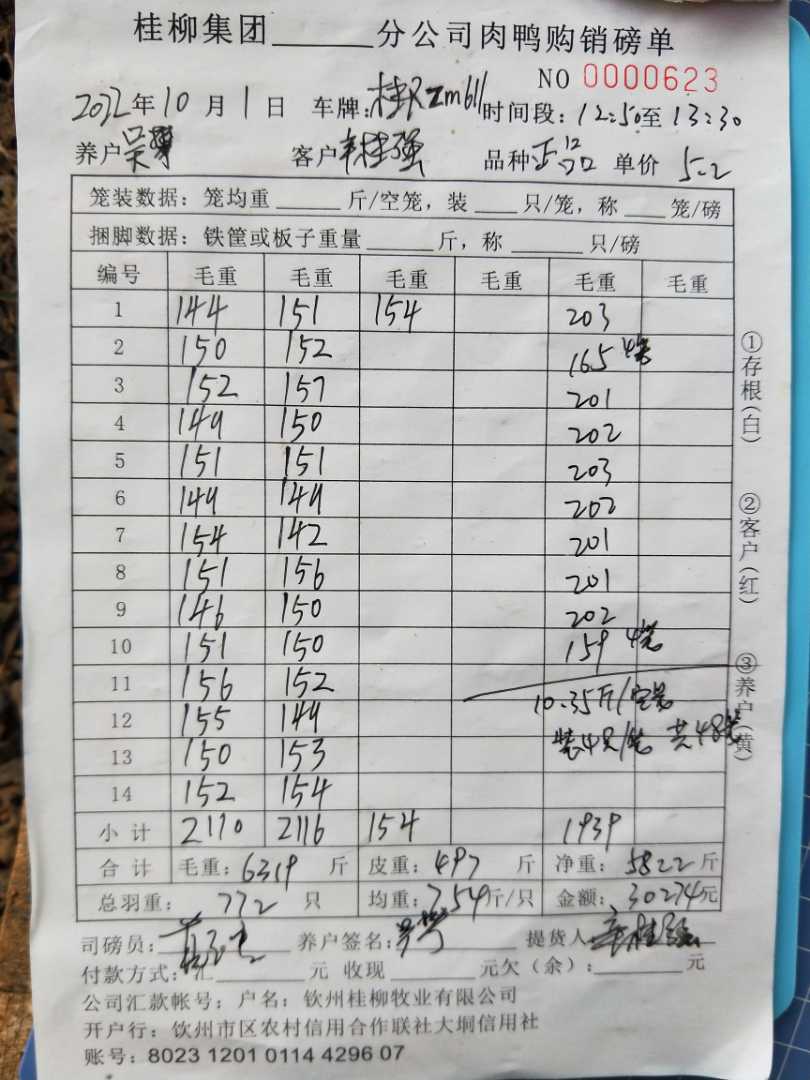 桂柳集团______分公司肉鸭购销磅单
NO 0000623
2022年10月1日 车牌:桂Rzm611 时间段:12:50至13:30
养户吴 客户韦桂强 品种正品 单价5.2
笼装数据: 笼均重_____斤/空笼, 装___只/笼, 称___笼/磅
捆脚数据: 铁筐或板子重量_____斤, 称_____只/磅
编号 毛重 毛重 毛重 毛重 毛重 毛重
1 144 151 154 203
2 150 152 165 4笼
3 152 157 201
4 149 150 202
5 151 151 203
6 149 149 202
7 154 142 201
8 151 156 201
9 146 150 202
10 151 150 159 4笼
11 156 152 10.35斤/空笼
12 155 149 装4只/笼 共48笼
13 150 153
14 152 154
小计 2110 2116 154 1939
合计 毛重:6319斤 皮重:497斤 净重:5822斤
总羽重: 772只 均重:7.54斤/只 金额:30274元
司磅员: 养户签名: 提货人韦桂强
付款方式:汇______元 收现______元欠(余):______元
公司汇款帐号: 户名: 钦州桂柳牧业有限公司
开户行: 钦州市区农村信用合作联社大垌信用社
账号: 8023 1201 0114 4296 07
①存根(白) ②客户(红) ③养户(黄)